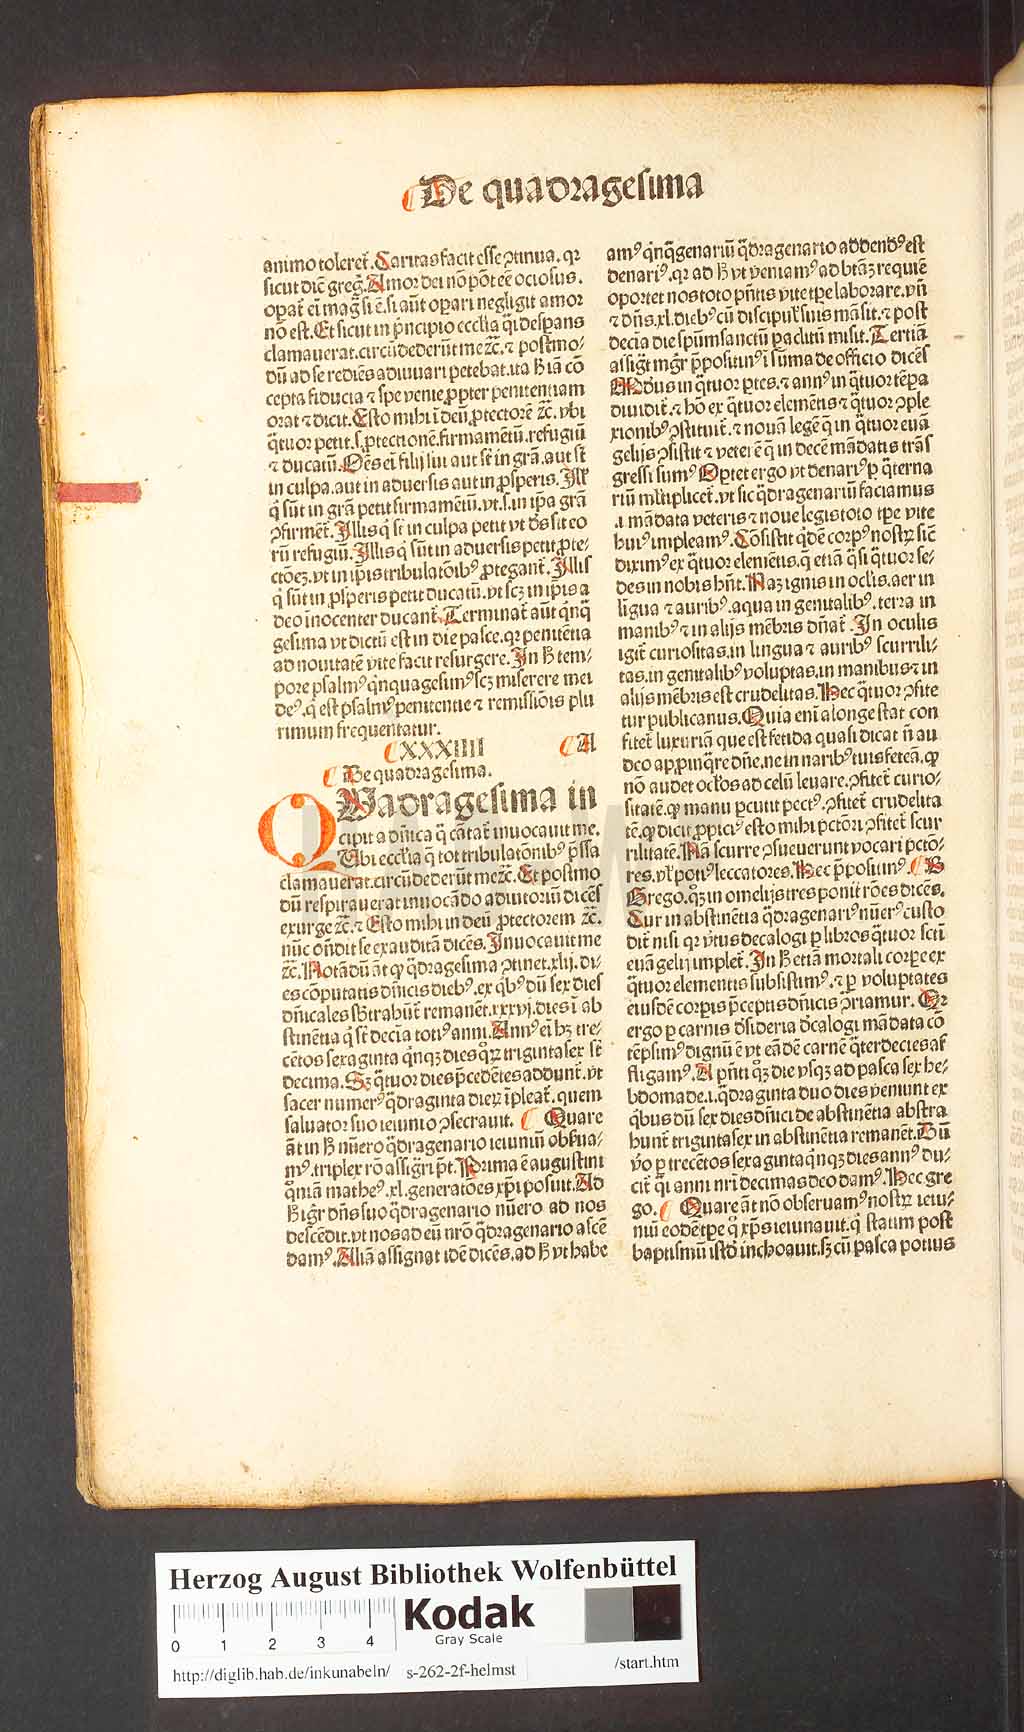 De quadragesima
animo toleret̄. Caritas facit esse ꝯtinua. qr
sicut diē greḡ. Amor dei nō pōt eē ociosus.
opat̄ em̄ mag̃ si ē. si aūt opari negligit amor
nō est. Et sicut in p̄ncipio ecclīa q̄i desp̄ans
clamauerat. circūdederūt me ⁊c̄. ⁊ postmo⸗
dū ad se rediēs adiuuari petebat. ita ꝧ iā cō
cepta fiducia ⁊ spe venie ꝓpter penitentiam
orat ⁊ dicit. Esto mihi ī deū ꝓtectorē ⁊c̄. vbi
q̄tuor petit. s. ꝓtectionē. firmamētū. refugiū
⁊ ducatū. Oēs em̄ filij sui aut sūt in grā. aut sūt
in culpa. aut in aduersis aut in ꝓsperis. Ill̄
q̇ sūt in grā petit firmamētū. vt. s. in ip̄a grā
ꝯfirmēt̄. Illis q̇ sūt in culpa petit vt de̓s sit eo
rū refugiū. Illis q̇ sūt in aduersis petit ꝓte⸗
ctōeꝫ. vt in ip̄is tribulatōibꝰ ꝓtegant̄. Illis
q̇ sūt in ꝓsperis petit ducatū. vt scꝫ in ip̄is a
deo īnocenter ducant̄. Terminat̄ aūt q̇nq̄
gesima vt dictū est in die pasce. qr penitētia
ad nouitatē vite facit resurgere. In ꝧ tem⸗
pore psalmꝰ q̇nquagesimꝰ scꝫ miserere mei
deꝰ. q̇ est psalmꝰ penitentie ⁊ remissiōis plu
rimum frequentatur.
XXXIIII A
De quadragesima.
QUadragesima in
cipit a dn̄ica q̄ cātat̄ inuocauit me.
Ubi ecclīa q̄ tot tribulatōnibꝰ p̄ssa
clamauerat. circūdederūt me ⁊c̄. Et postmo
dū respirauerat inuocādo adiutoriū dicēs
exurge ⁊c̄. ⁊ Esto mihi in deū ꝓtectorem ⁊c̄.
nūc oñdit se exauditā dicēs. Inuocauit me
⁊c̄. Notādū āt ꝙ q̄dragesima ꝯtinet. xlij. di⸗
es cōputatis dn̄icis diebꝰ. ex q̇bꝰ dū sex dies
dn̄icales sb̄trahūt̄ remanēt. xxxvj. dies ī ab
stinētia q̇ sūt decīa totiꝰ anni. Annꝰ em̄ hꝫ tre⸗
cētos sexaginta q̇nqꝫ dies q̇ꝝ triginta sex sūt
decima. Sꝫ q̄tuor dies p̄cedētes addunt̄. vt
sacer numerꝰ q̄draginta dieꝝ īpleat̄. quem
saluator suo ieiunio ꝯsecrauit. Quare
āt in ꝧ nūero q̄dragenario ieiuniū obẜua⸗
mꝰ. triplex rō assig̃ri pt̄. Prima ē augustini
qm̄iā matheꝰ. xl. generatōes xp̄i posuit. Ad
ꝧ igr̄ dn̄s suo q̄dragenario nūero ad nos
descēdit. vt nos ad eū nr̄o q̄dragenario ascē
damꝰ. Aliā assignat idē dicēs. ad ꝧ vt habe
amꝰ q̇nq̄genariū q̄dragenario addendꝰ est
denariꝰ. qr ad ꝧ vt veniamꝰ ad btāꝫ requiē
oportet nos toto pn̄tis vite tp̄e laborare. vn̄
⁊ dn̄s. xl. diebꝰ cū discipul̄ suis māsit. ⁊ post
decīa die sp̄umsanctū paclitū misit. Tertiā
assig̃t mgr̄ p̄positinꝰ ī sūma de officio dicēs
Mūdus in q̄tuor ptes. ⁊ annꝰ in q̄tuor tēpa
diuidit̄. ⁊ hō ex q̄tuor elemētis ⁊ q̄tuor ꝯple
xionibꝰ ꝯstituit̄. ⁊ nouā legē q̄ in q̄tuor euā
gelijs ꝯsistit ⁊ veterē q̄ in decē mādatis trās
gressi sumꝰ Oꝑtet ergo vt denariꝰ ꝑ q̄terna
riū mltiplicet̄. vt sic q̄dragenariū faciamus
.i. mādata veteris ⁊ noue legis toto tpe vite
huiꝰ impleamꝰ. Cōsistit q̇dē corpꝰ nostꝝ sic̄
diximꝰ ex q̄tuor elemētis. q̄ etiā q̄si q̄tuor se⸗
des in nobis hn̄t. Naꝫ ignis in oclīs. aer in
līgua ⁊ auribꝰ. aqua in genitalibꝰ. terra in
manibꝰ ⁊ in alijs mēbris dn̄at̄. In oculis
igit̄ curiositas. in lingua ⁊ auribꝰ scurrili⸗
tas. in genitalibꝰ voluptas. in manibus ⁊ in
alijs mēbris est crudelitas. Hec q̄tuor ꝯfite
tur publicanus. Quia eni̅ a longe stat con
fitet̄ luxuriā que est fetida quasi dicat n̄ au
deo appinq̄re dn̄e. ne in naribꝰ tuis feteā. ꝙ
nō audet oclōs ad celū leuare. ꝯfitet̄ curio⸗
sitatē. ꝙ manu percutit pectꝰ. ꝯfitet̄ crudelita
tē. ꝙ dicit. ꝓpiciꝰ esto mihi pctōri. ꝯfitet̄ scur
rilitatē. Nā scurre ꝯsueuerunt vocari pctō⸗
res. vl̄ potiꝰ leccatores. Hec p̄positinꝰ. B
Grego. qꝫ in omelijs tres ponit rōes dicēs.
Cur in abstinētia q̄dragenariꝰ nūerꝰ custo
dit̄ nisi qr v̓tus decalogi ꝑ libros q̄tuor sctī
euāgelij implet̄. In ꝧ etiā mortali corpe ex
q̄tuor elementis subsistimꝰ. ⁊ ꝑ voluptates
eiusdē corpis p̄ceptis dn̄icis ꝯtriamur. Qr
ergo ꝑ carnis d̓sideria d̓calogi mādata cō
tēpsimꝰ dignū ē vt eādē carnē q̄ter decies af
fligamꝰ. A pn̄ti qꝫ die vsqꝫ ad pasca sex he⸗
bdomade. i. q̄draginta duo dies veniunt ex
q̇bus dū sex dies dn̄ici de abstinētia abstra
hunt̄ triginta sex in abstinētia remanēt. Dū
v̓o ꝑ trecētos sexaginta q̇nqꝫ dies annꝰ du⸗
cit̄ q̄i anni nri̅ decimas deo damꝰ. Hec gre
go. Quare āt nō obseruamꝰ nostꝝ ieiu⸗
niū eodē tpe q̊ xp̄s ieiunauit. q̇ statim post
baptismū istd̓ inchoauit. sꝫ cū pasca potius
HAB-W
Herzog August Bibliothek Wolfenbüttel
0 1 2 3 4
Kodak
Gray Scale
http://diglib.hab.de/inkunabeln/ s-262-2f-helmst /start.htm